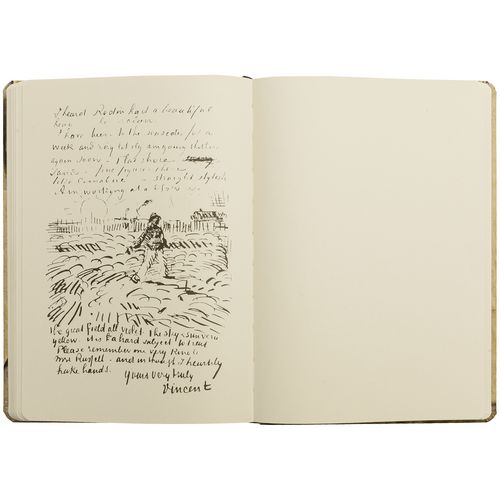 I heard Rodin had a beautiful
head at the salon.
I have been to the seaside for a
week and very likely am going thither
again soon. - Flat shore
sands - fine figures there
like Cimabue - straight stylish
Am working at a Sower
the great field all violet the sky & sun very
yellow. it is a hard subject to treat
Please remember me very kindly
Mrs Russell - and in thought I heartily
shake hands.
Yours very truly
Vincent